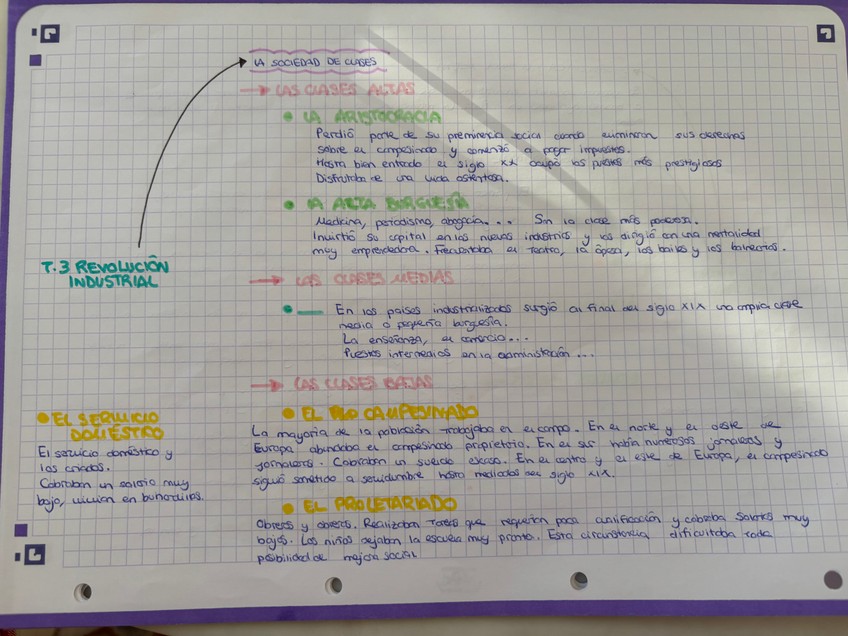 LA SOCIEDAD DE CLASES
→ LAS CLASES ALTAS
• LA ARISTOCRACIA
Perdió parte de su preminencia social cuando eliminaron sus derechos
sobre el campesinado y comenzó a pagar impuestos.
Hasta bien entrado el siglo XX ocupó los puestos más prestigiosos
Disfrutaba de una vida ostentosa.
• LA ALTA BURGUESÍA
Medicina, periodismo, abogacía... Son la clase más poderosa.
Invirtió su capital en las nuevas industrias y las dirigió con una mentalidad
muy emprendedora. Frecuentaba el teatro, la ópera, los bailes y los balnearios.
T.3 REVOLUCIÓN
INDUSTRIAL
→ LAS CLASES MEDIAS
• — En los países industrializados surgió al final del siglo XIX una amplia clase
media o pequeña burguesía.
La enseñanza, el comercio...
Puestos intermedios en la administración...
→ LAS CLASES BAJAS
• EL CAMPESINADO
La mayoría de la población trabajaba en el campo. En el norte y el oeste de
Europa abundaba el campesinado propietario. En el sur había numerosos jornaleros y
jornaleras. Cobraban un sueldo escaso. En el centro y el este de Europa, el campesinado
siguió sometido a servidumbre hasta mediados del siglo XIX.
• EL PROLETARIADO
Obreros y obreras. Realizaban tareas que requerían poca cualificación y cobraba salarios muy
bajos. Los niños dejaban la escuela muy pronto. Esta circunstancia dificultaba toda
posibilidad de mejora social
• EL SERVICIO
DOMÉSTICO
El servicio doméstico y
los criados.
Cobraban un salario muy
bajo, vivían en buhardillas.